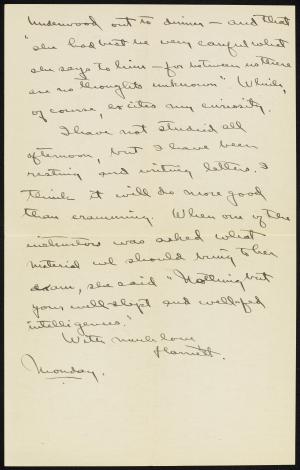 Underwood out to dinner – and that
"she had best be very careful what
she says to him – for between us there
are no thoughts unknown". Which,
of course, excites my curiosity.
I have not studied all
afternoon, but I have been
resting and writing letters. I
think it will do more good
than cramming. When one of the
instructors was asked what
material we should bring to her
exam, she said "Nothing but
your well-slept and well-fed
intelligences."
With much love
Harriett.
Monday.